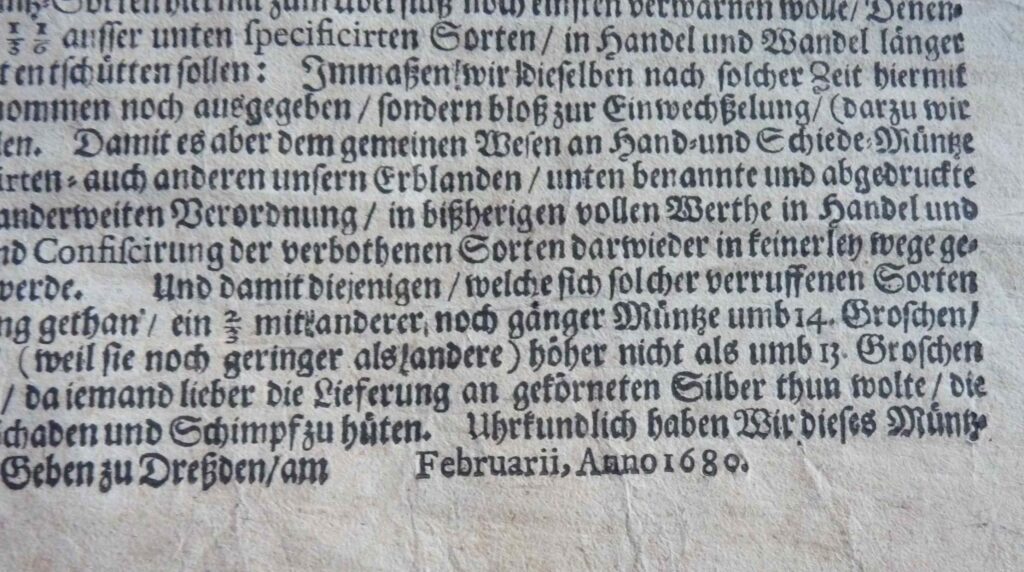 ntz-Sorten hiermit zum Uberfluß noch einsten verwarnen wolle/ Denen-
1/3 1/6 ausser unten specificirten Sorten/ in Handel und Wandel länger
t entschütten sollen: Immaßen wir dieselben nach solcher Zeit hiermit
nommen noch ausgegeben/ sondern bloß zur Einwechßelung/ (darzu wir
len. Damit es aber dem gemeinen Wesen an Hand-und Schiede-Müntze
irten-auch anderen unsern Erblanden/ unten benannte und abgedruckte
anderweiten Verordnung/ in bißherigen vollen Werthe in Handel und
nd Confiscirung der verbothenen Sorten darwieder in keinerley wege ge-
werde. Und damit diejenigen/ welche sich solcher verruffenen Sorten
ng gethan/ ein 2/3 mit anderer, noch gänger Müntze umb 14. Groschen/
(weil sie noch geringer als andere) höher nicht als umb 13. Groschen
/ da iemand lieber die Lieferung an gekörneten Silber thun wolte/ die
chaden und Schimpf zu hüten. Uhrkundlich haben Wir dieses Müntz-
Geben zu Dreßden/ am Februarii, Anno 1680.